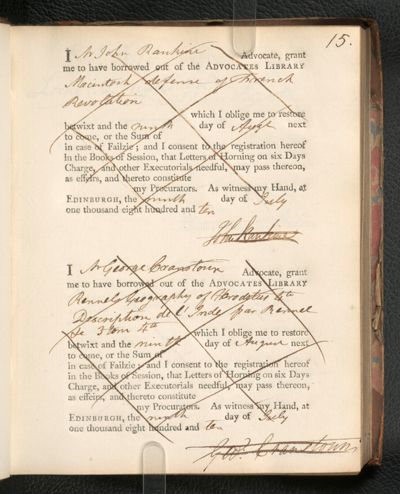 15.
I Mr John Rankine Advocate, grant
me to have borrowed out of the ADVOCATES LIBRARY
Macintosh defense of French
Revolution
which I oblige me to restore
betwixt and the ninth day of Agust next
to come, or the Sum of
in case of Failzie; and I consent to the registration hereof
in the Books of Session, that Letters of Horning on six Days
Charge, and other Executorials needful, may pass thereon,
as effeirs, and thereto constitute
my Procurators. As witness my Hand, at
EDINBURGH, the ninth day of July
one thousand eight hundred and ten
Jhn Rankine
I Mr George Cranstoun Advocate, grant
me to have borrowed out of the ADVOCATES LIBRARY
Rennels Geography of Herodotus 4to
Description de l'Inde par Rennel
3 tom 4to which I oblige me to restore
betwixt and the ninth day of August next
to come, or the Sum of
in case of Failzie; and I consent to the registration hereof
in the Books of Session, that Letters of Horning on six Days
Charge, and other Executorials needful, may pass thereon,
as effeirs, and thereto constitute
my Procurators. As witness my Hand, at
EDINBURGH, the ninth day of July
one thousand eight hundred and ten
Geo. Cranstoun